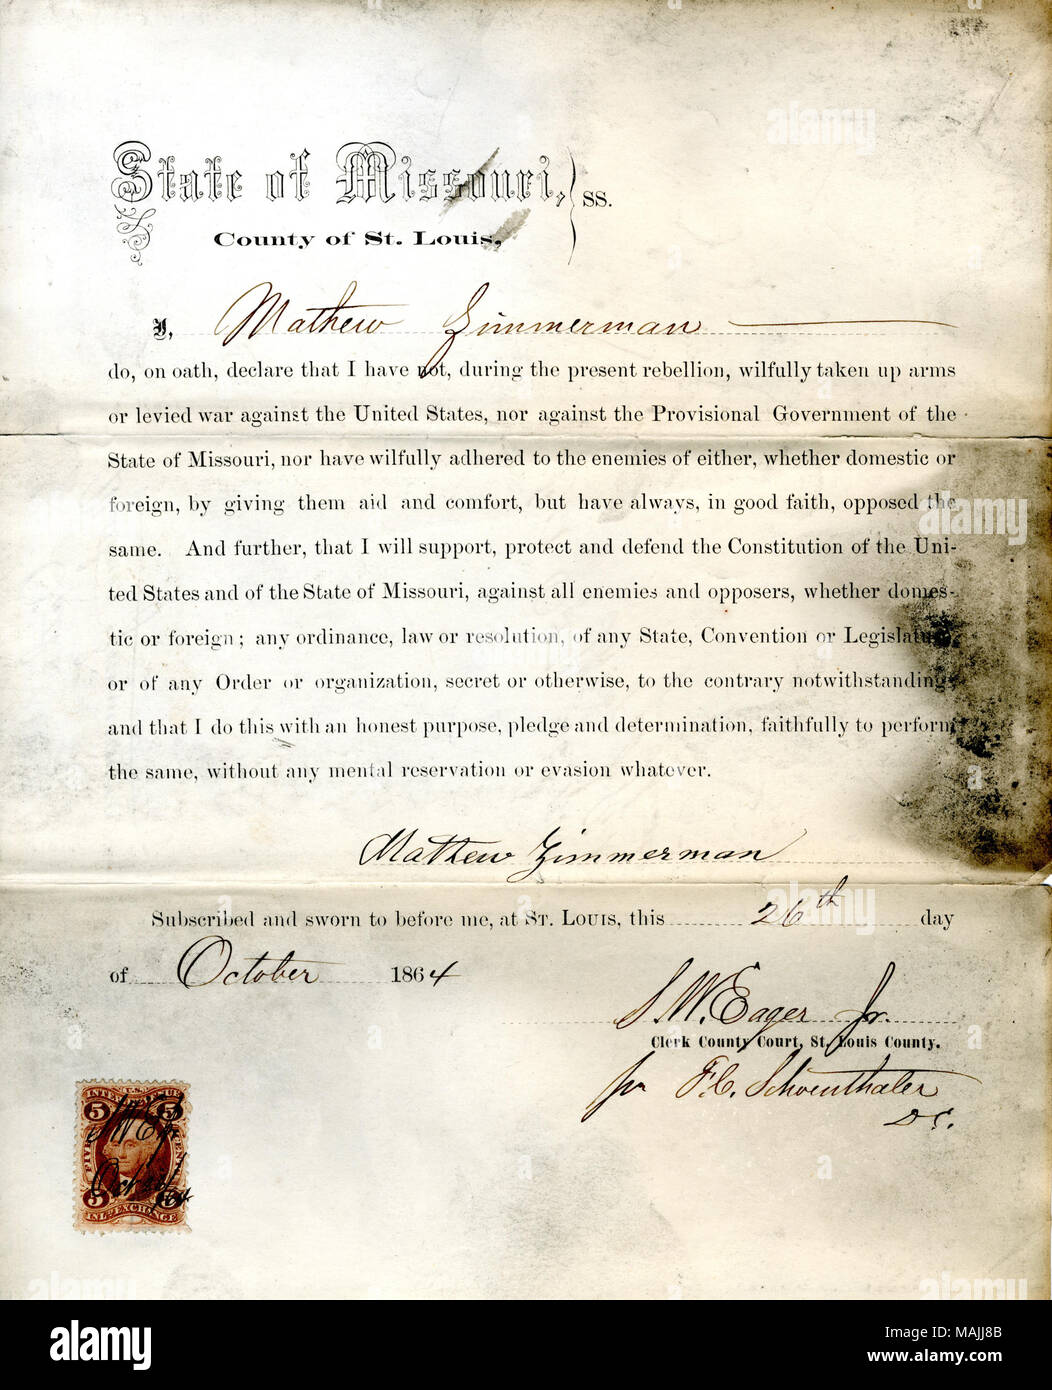 State of Missouri, } ss.
County of St. Louis,
I, Mathew Zimmerman
do, on oath, declare that I have not, during the present rebellion, wilfully taken up arms
or levied war against the United States, nor against the Provisional Government of the
State of Missouri, nor have wilfully adhered to the enemies of either, whether domestic or
foreign, by giving them aid and comfort, but have always, in good faith, opposed the
same. And further, that I will support, protect and defend the Constitution of the Uni-
ted States and of the State of Missouri, against all enemies and opposers, whether domes-
tic or foreign; any ordinance, law or resolution, of any State, Convention or Legislature,
or of any Order or organization, secret or otherwise, to the contrary notwithstanding,
and that I do this with an honest purpose, pledge and determination, faithfully to perform
the same, without any mental reservation or evasion whatever.
Mathew Zimmerman
Subscribed and sworn to before me, at St. Louis, this 26th day
of October 1864
S. W. Eager Jr.
Clerk County Court, St. Louis County.
pr F. C. Schoenthaler
D C.
INTER. REVENUE
5 5
FIVE CENTS
5 5
INL. EXCHANGE
alamy
Image ID: MAJJ8B
www.alamy.com